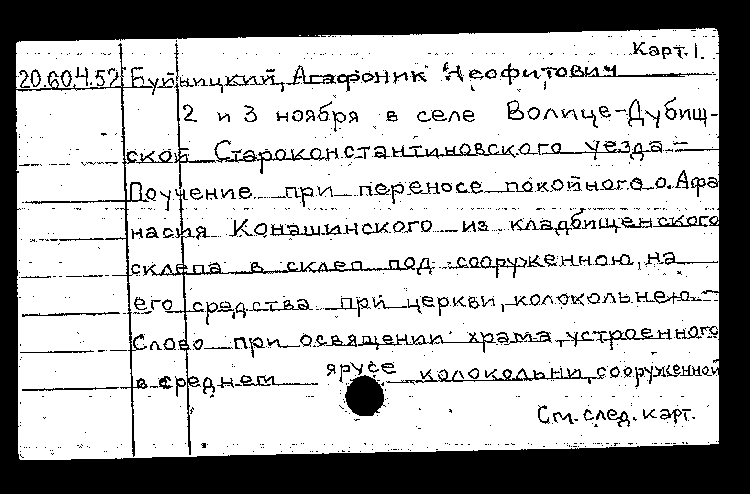 Карт. 1.
20.60.4.52 Буйницкий, Агафоник Неофитович
2 и 3 ноября в селе Волице-Дубищ-
ской Староконстантиновского уезда –
Поучение при переносе покойного о. Афа
насия Конашинского из кладбищенского
склепа в склеп под сооруженною, на
его средства при церкви, колокольнею –
Слово при освящении храма, устроенного
в среднем ярусе колокольни, сооруженной
См. след. карт.